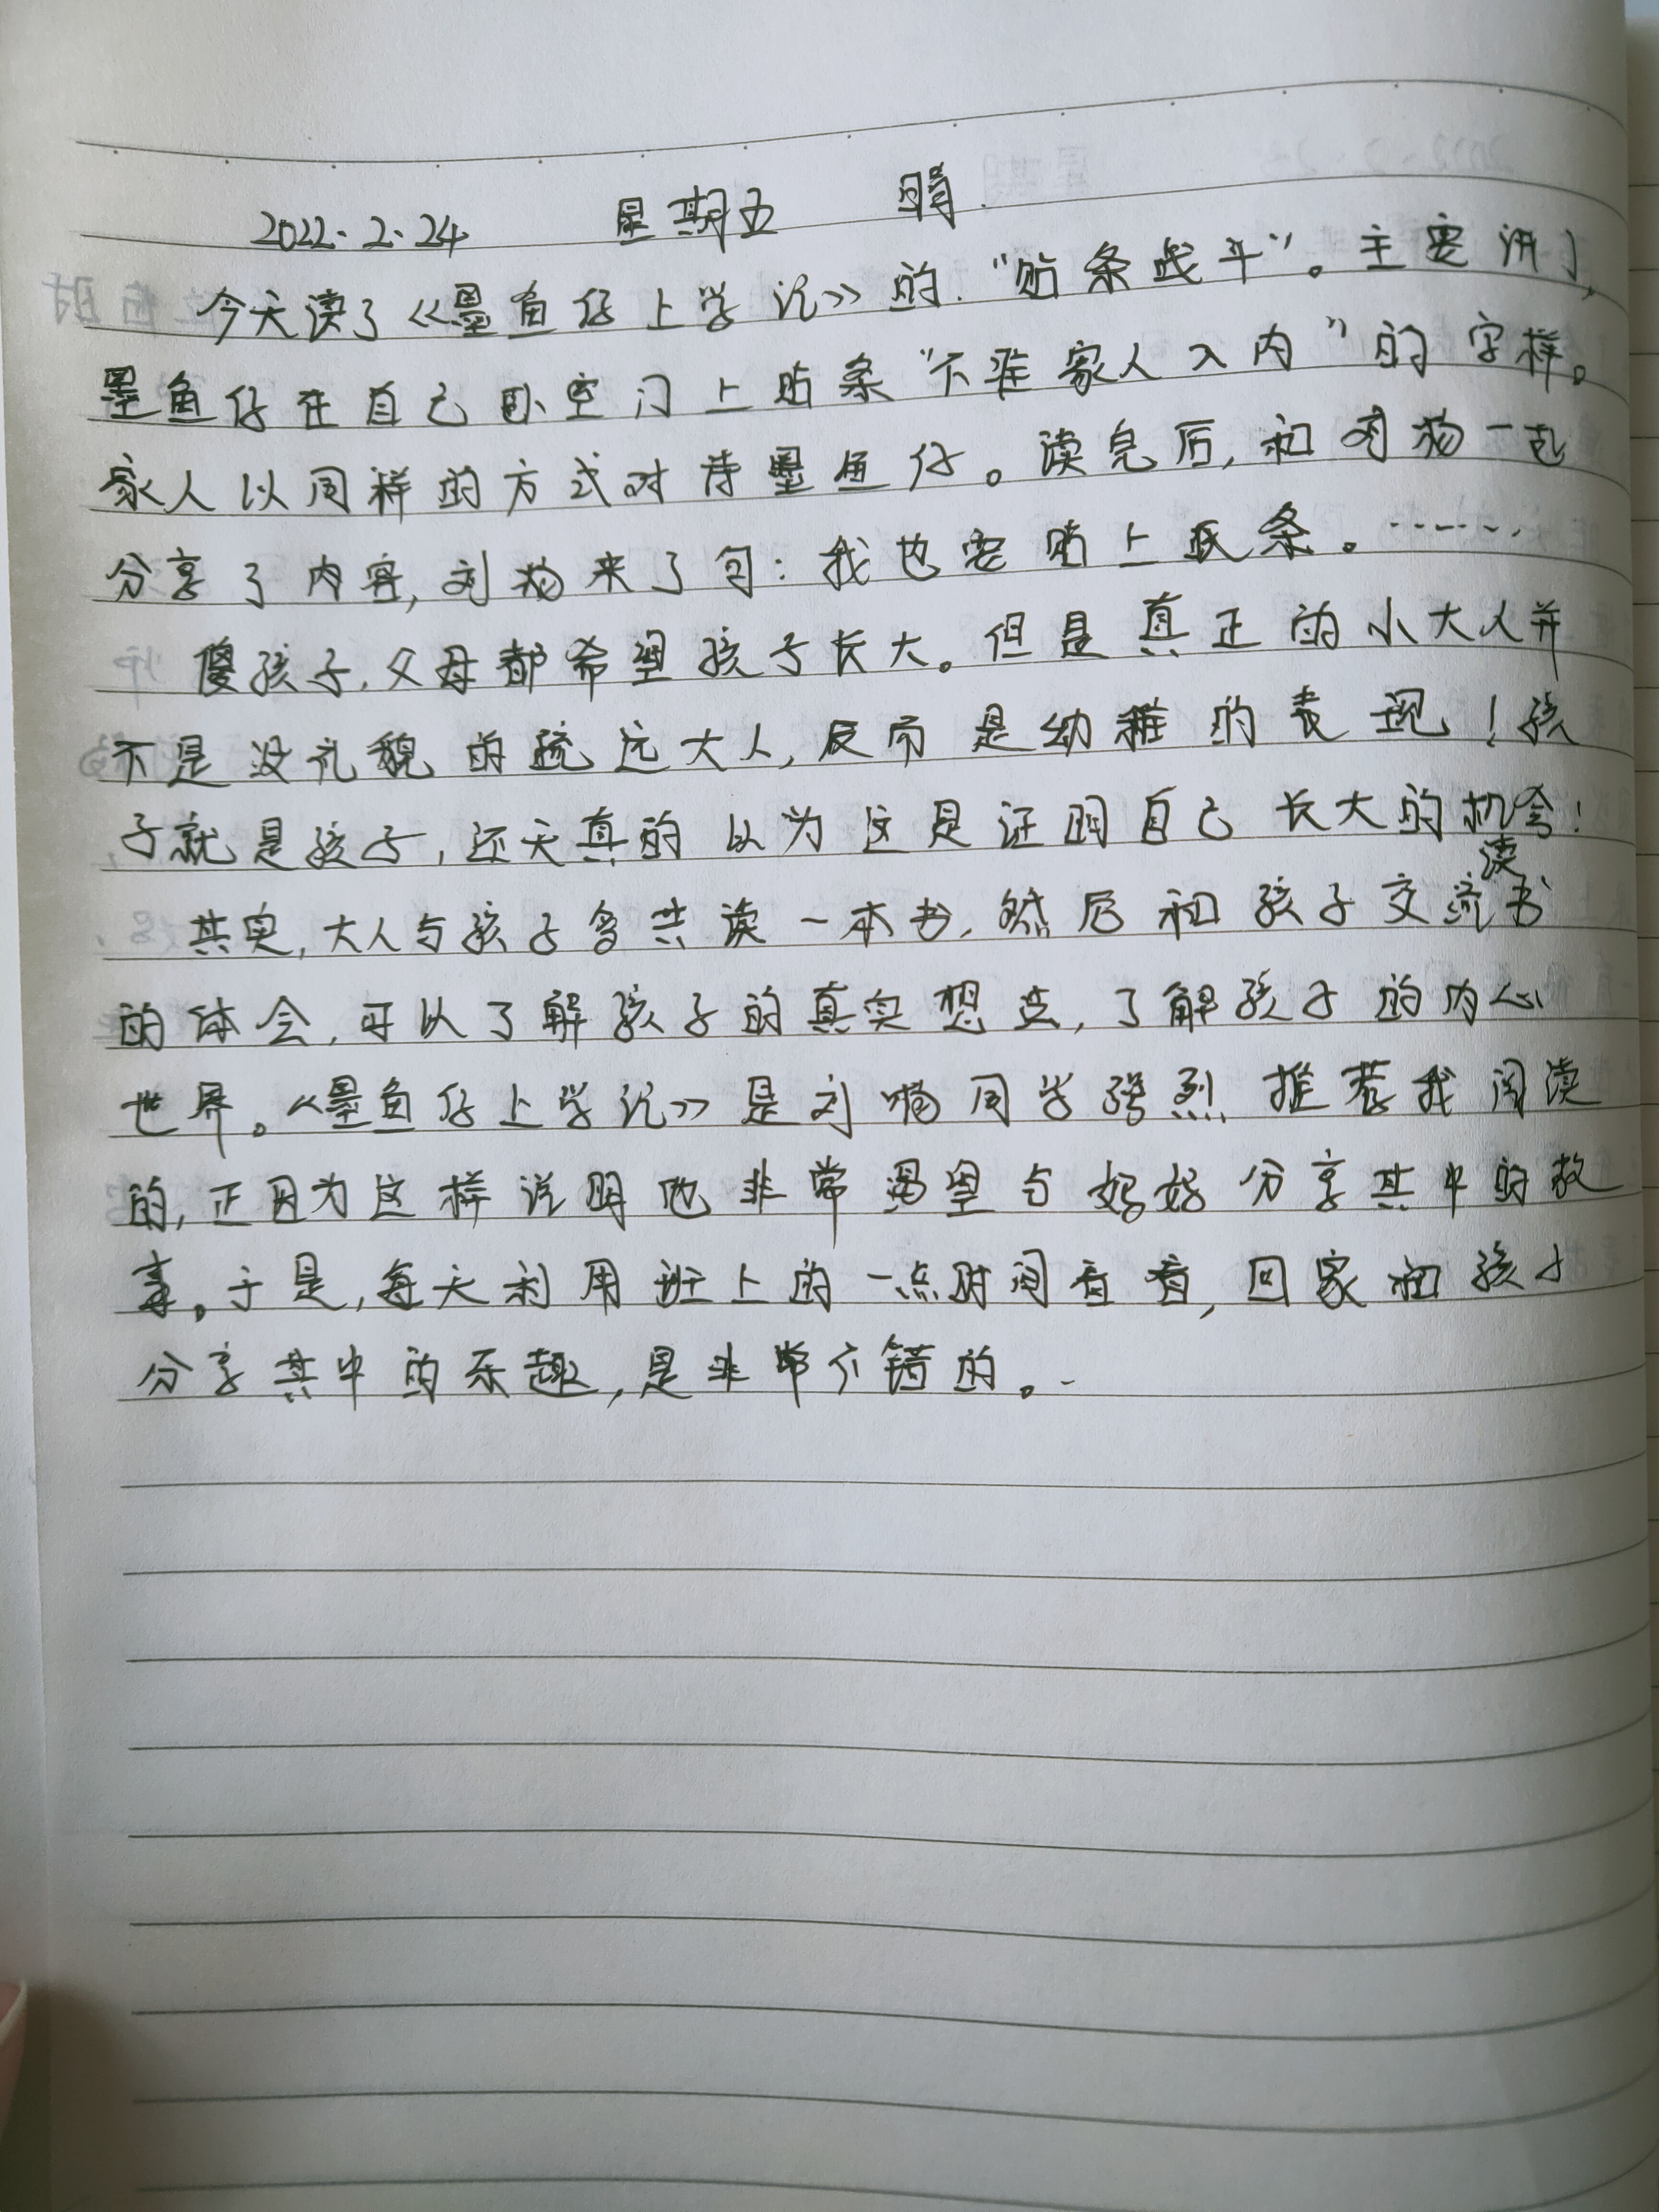 2022.2.24 星期五 晴.
今天读了《墨鱼仔上学记》的“贴条战争”。主要讲了,
墨鱼仔在自己卧室门上贴条“不准家人入内”的字样。
家人以同样的方式对待墨鱼仔。读完后,和刘一起
分享了内容,刘来了句:我也要贴上纸条。……
傻孩子,父母都希望孩子长大。但是真正的小大人并
不是没礼貌的疏远大人,反而是幼稚的表现!孩
子就是孩子,还天真的以为这是证明自己长大的机会!
其实,大人与孩子多共读一本书,然后和孩子交流读书
的体会,可以了解孩子的真实想法,了解孩子的内心
世界。《墨鱼仔上学记》是刘同学强烈推荐我阅读
的,正因为这样说明他非常渴望与妈妈分享其中的故
事。于是,每天利用班上的一点时间看看,回家和孩子
分享其中的乐趣,是非常不错的。